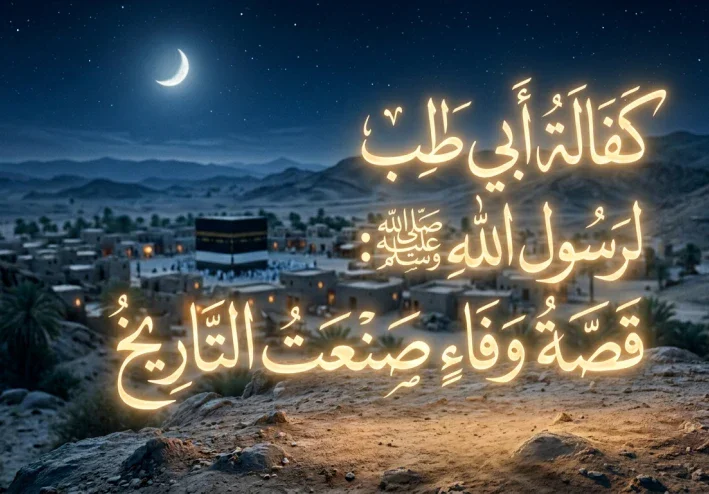 كَفَالَةُ أَبِي طَلِب
لرَسُولِ اللَّهِ ﷺ:
قَصَّةُ وَفَاءٍ صَنْعَتُ التَّارِيخُ